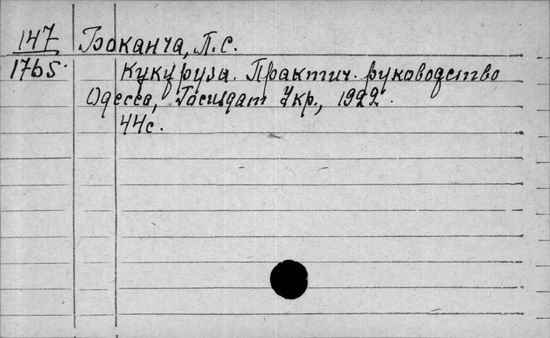 147 Боканча, Л. С.
1765 Кукуруза. Практич. руководство
Одесса, Госиздат Укр., 1922.
44с.